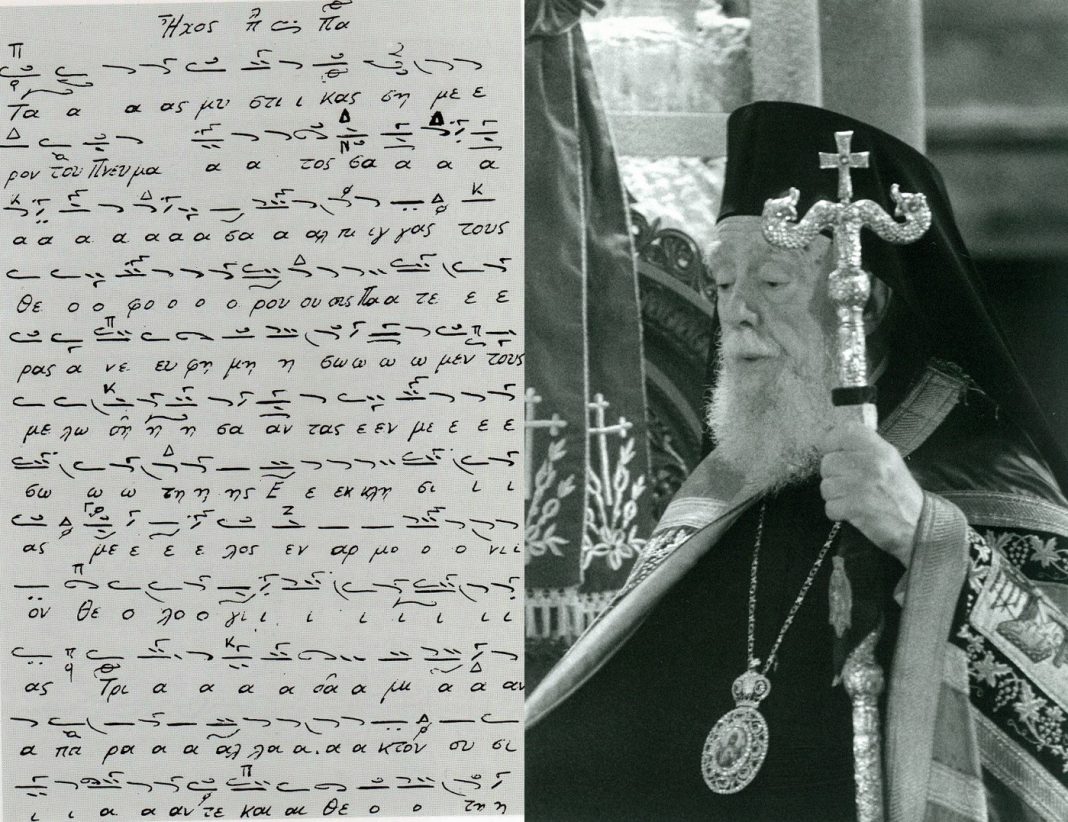 Ἦχος πλ Πα
Τα α α ας μυ στι ι κας ση με ε
ρον του Πνευμα α α τος σα α α α
α α α α α α α σα α αλ πι ιγ γας τους
θε ο ο φο ο ο ο ρου ου σις Πα α τε ε ε
ρας α νε ευ φη μη η σω ω ω ω μεν τους
με λω δη η η σα αν τας ε εν με ε ε ε
σω ω ω τη η ης Ε ε εκ κλη σι ι ι
ας με ε ε ε λος εν αρ μο ο ο νι ι
ον θε ο λο ο γι ι ι ι ι ι ι
ας Τρι α α α α δα α μι α α αν
α πα ρα α α αλ λα α α α κτον ου σι
ι ι α α αν τε και αι θε ο ο τη η